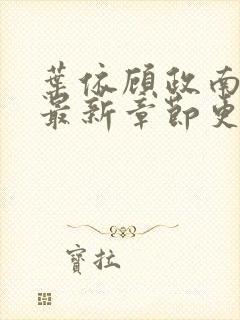 葉依顧政南
最新章節更
寶拉